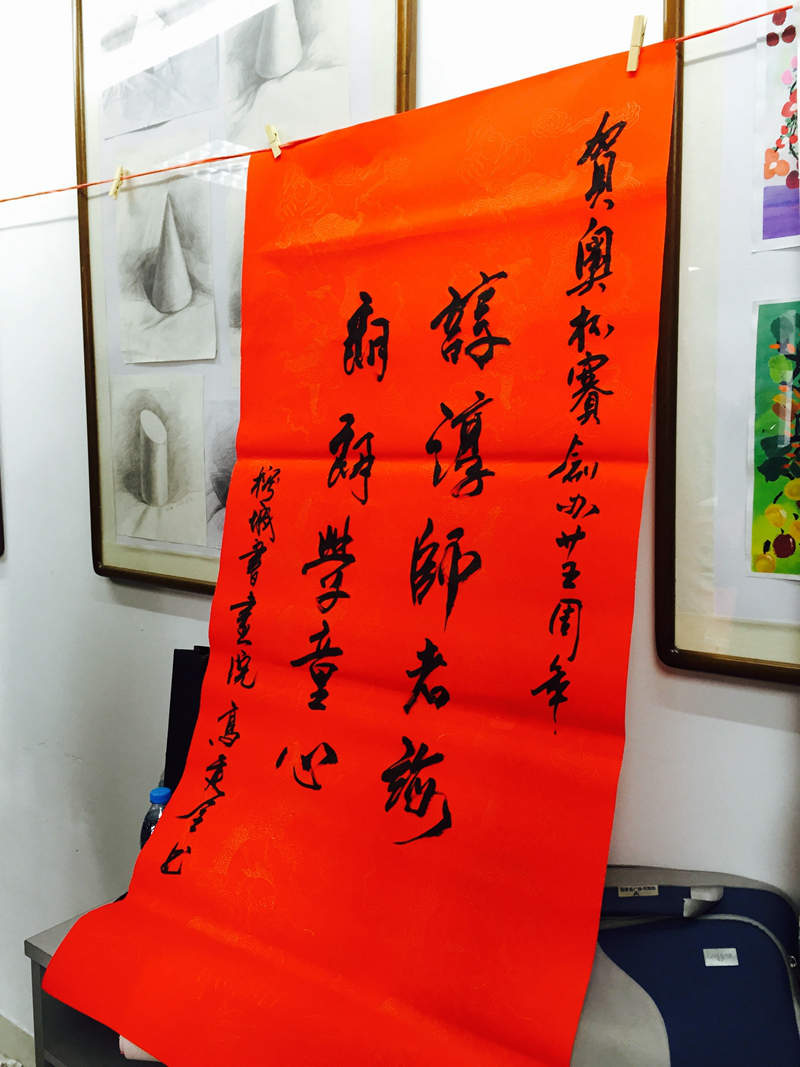 賀奥杯賽創办廿五周年
諄諄師者
朗朗學童心
城書畫院 高